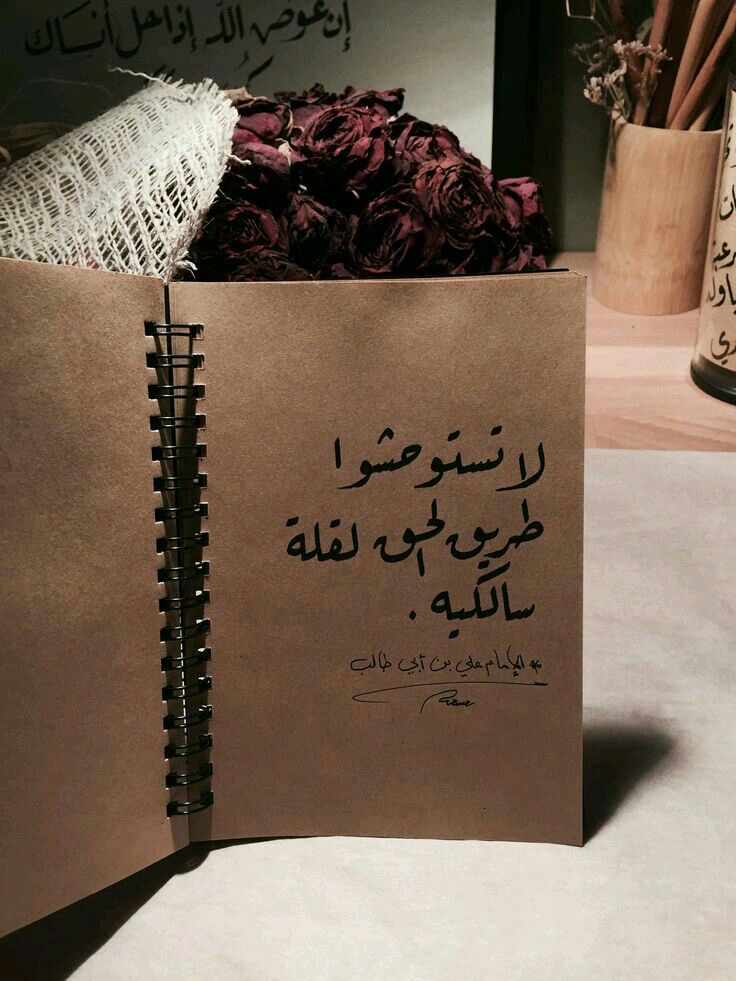 إن عوض الله إذا حل أنساك
لا تستوحشوا
طريق الحق لقلة
سالكيه .
الإمام علي بن أبي طالب